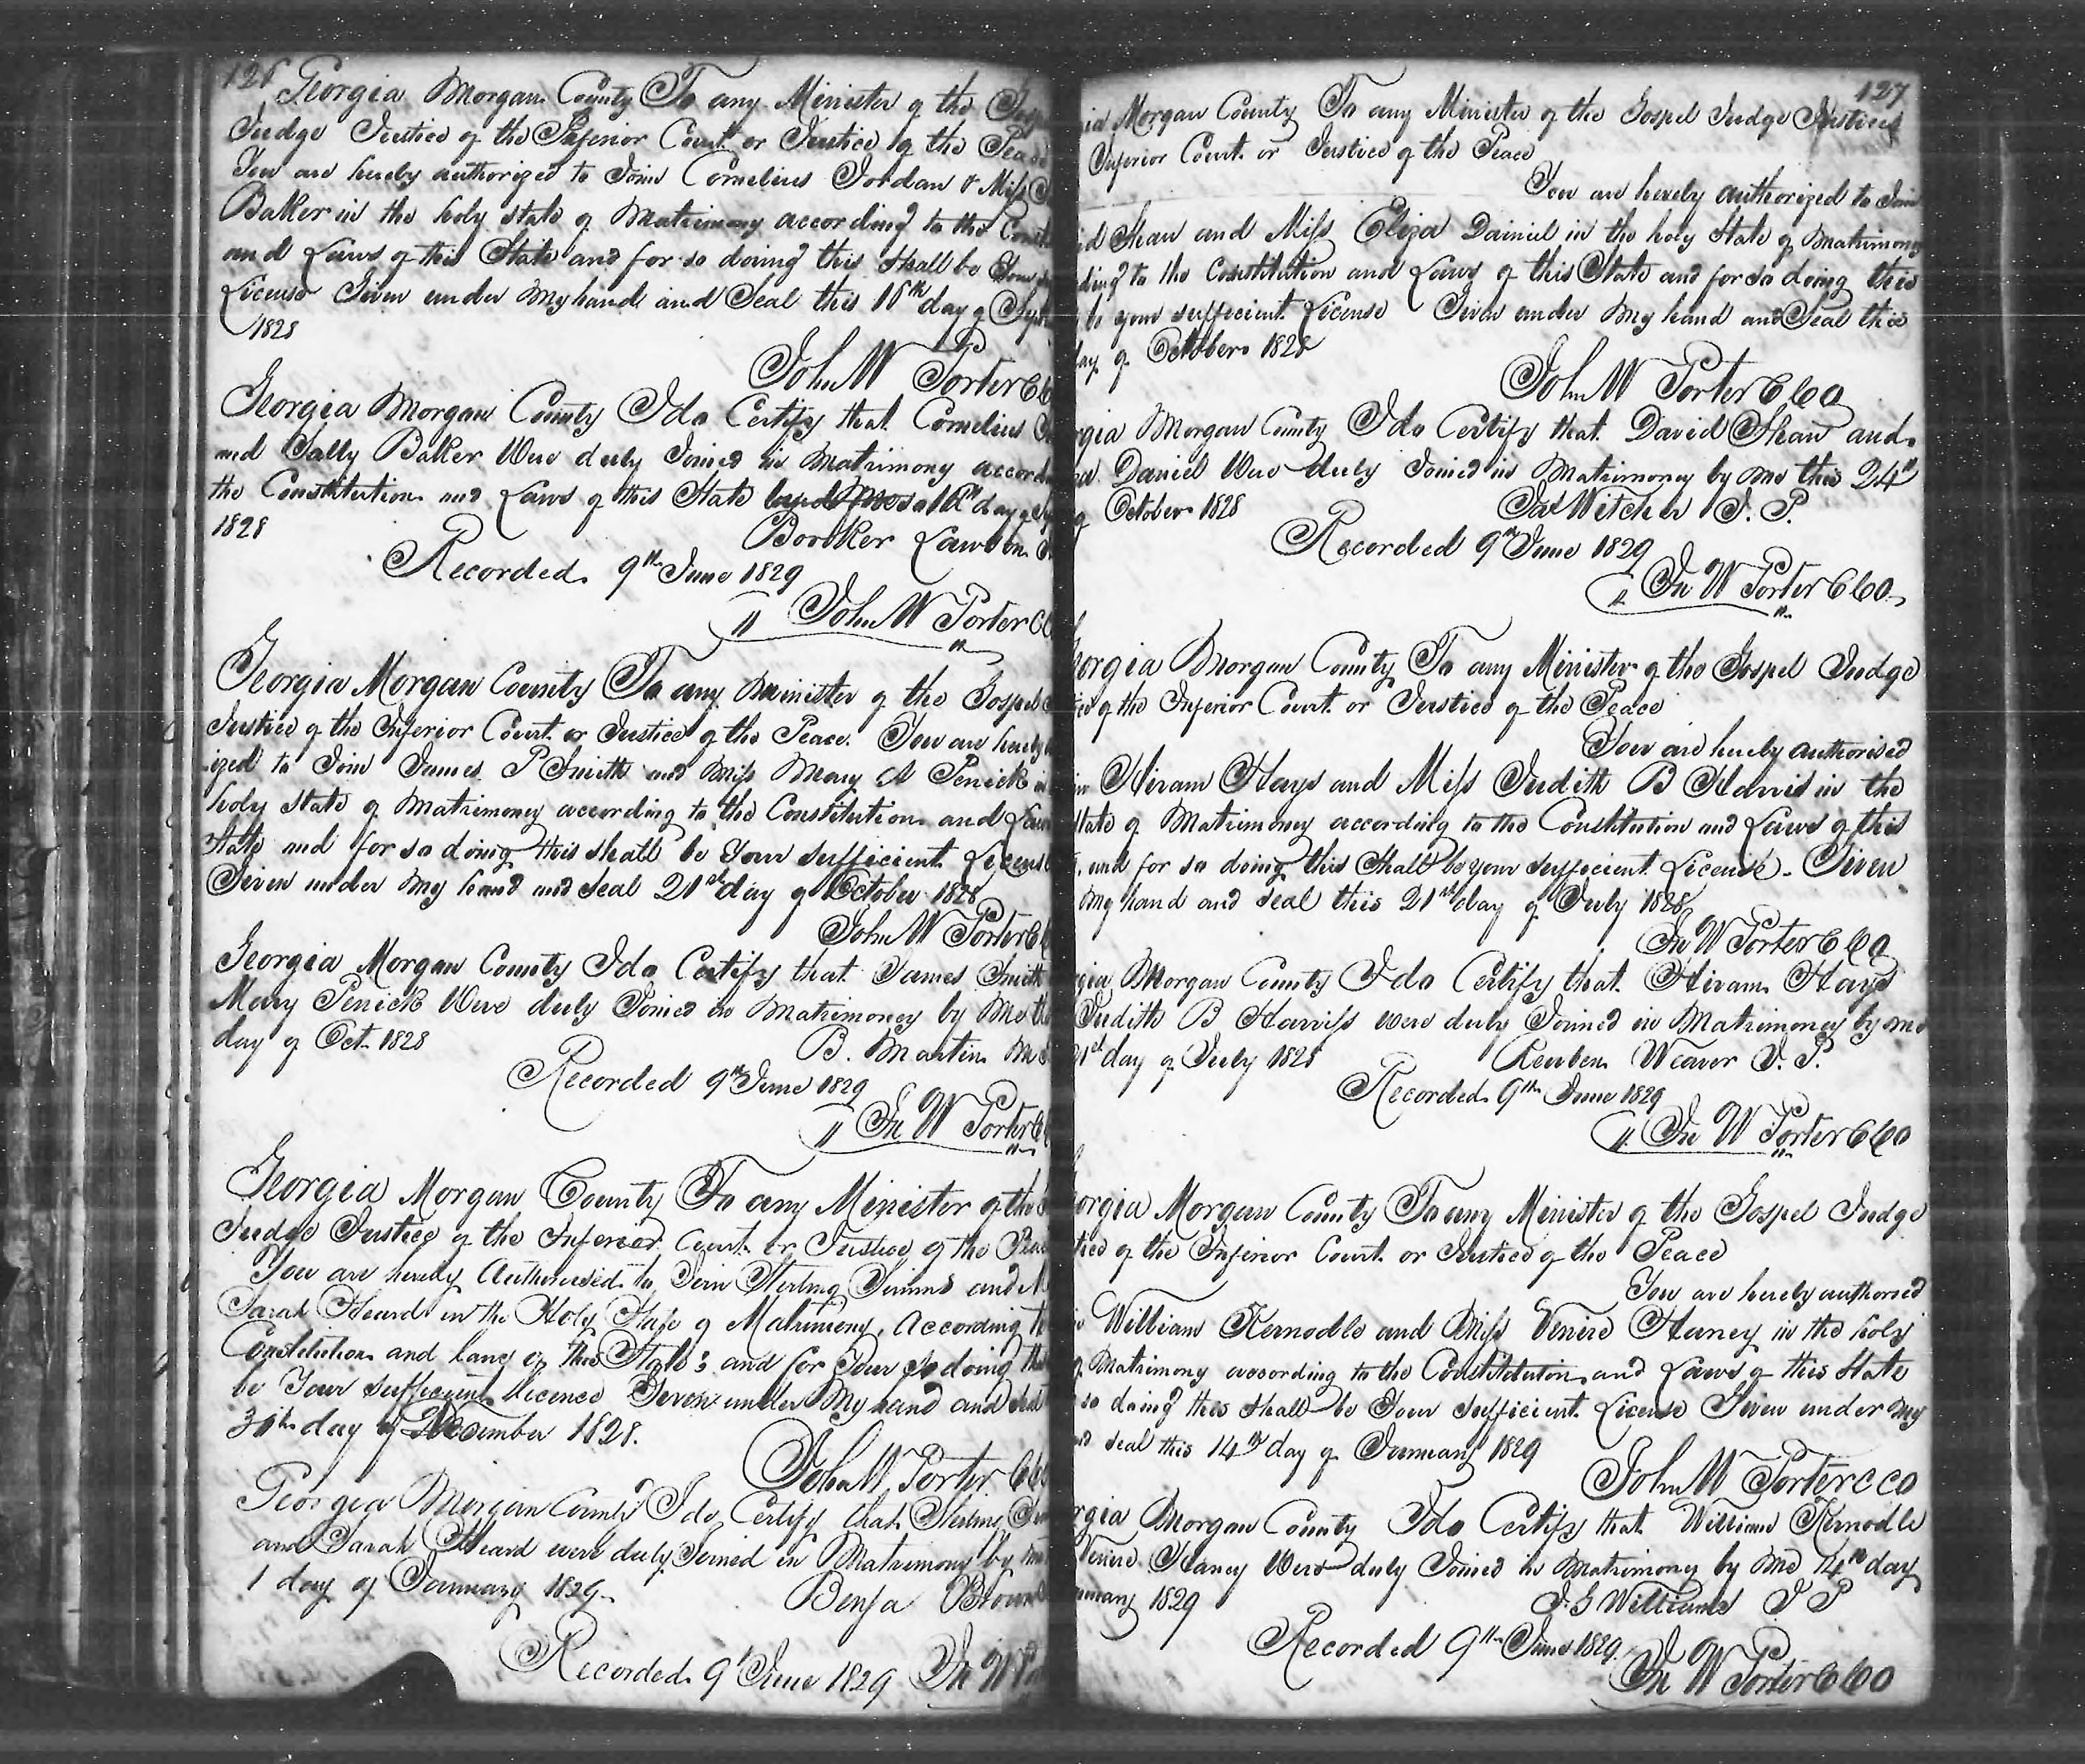 126
Georgia Morgan County To any Minister of the
Judge Justice of the Inferior Court or Justice of the Peace
You are hereby authorized to Join Cornelius Jordan & Miss
Baker in the holy state of Matrimony according to the
and Laws of this State and for so doing this shall be Your
License Given under My hand and Seal this 16th day of
1828
John W Porter
Georgia Morgan County I do Certify that Cornelius
and Sally Baker Were duly Joined in Matrimony
the Constitution and Laws of this State 16th day of
1828
Booker Lawson
Recorded 9th June 1829
John W Porter
Georgia Morgan County To any Minister of the Gospel
Justice of the Inferior Court or Justice of the Peace. You are hereby
ized to Join James P Smith and Miss Mary A Penick in
holy state of Matrimony according to the Constitution and Laws
State and for so doing this shall be Your sufficient License
Given under My hand and Seal 21st day of October 1828
John W Porter
Georgia Morgan County I do Certify that James Smith
Mary Penick Were duly Joined in Matrimony by Me
day of Oct 1828
B. Martin
Recorded 9th June 1829
Jn W Porter
Georgia Morgan County To any Minister of the
Judge Justice of the Inferior Court or Justice of the
You are hereby Authorised to Join Sterling Simms and
Sarah Heard in the Holy State of Matrimony, According
Constitution and Laws of this State; and for Your so doing
be Your sufficient licence Given under My hand and
30th day of December 1828.
John W Porter
Georgia Morgan County I do Certify that Sterling
and Sarah Heard were duly Joined in Matrimony by
1 day of January 1829
Benja Brown
Recorded 9 June 1829 Jn W
127
Morgan County To any Minister of the Gospel Judge Justice
Inferior Court or Justice of the Peace
You are hereby authorized to Join
Shaw and Miss Eliza Dainiel in the holy State of Matrimony
ding to the Constitution and Laws of this State and for so doing this
be your sufficient License Given under My hand and Seal this
day of October 1828
John W Porter CCO
rgia Morgan County I do Certify that David Shaw and
Daniel Were duly Joined in Matrimony by Me this 24th
October 1828
Jas Witcher J. P.
Recorded 9th June 1829
Jn W Porter CCO
eorgia Morgan County To any Minister of the Gospel Judge
tice of the Inferior Court or Justice of the Peace
You are hereby authorised
Hiram Hays and Miss Judith B Harris in the
State of Matrimony according to the Constitution and Laws of this
and for so doing this Shall be your sufficient License - Given
My hand and seal this 21st day of July 1828
Jn W Porter CCO
rgia Morgan County I do Certify that Hiram Hays
Judith B Harriss were duly Joined in Matrimony by me
21st day of July 1828
Reuben Weaver J. P.
Recorded 9th June 1829
Jn W Porter CCO
eorgia Morgan County To any Minister of the Gospel Judge
tice of the Inferior Court or Justice of the Peace
You are hereby authorised
William Kernodle and Miss Venire Haney in the holy
Matrimony according to the Constitution and Laws of this State
so doing this shall be Your sufficient License Given under My
seal this 14th day of January 1829
John W Porter CCO
rgia Morgan County I do Certify that William Kernodle
Venire Haney Were duly Joined in Matrimony by Me 14th day
nuary 1829
J. G Williams J P
Recorded 9th June 1829
Jn W Porter CCO